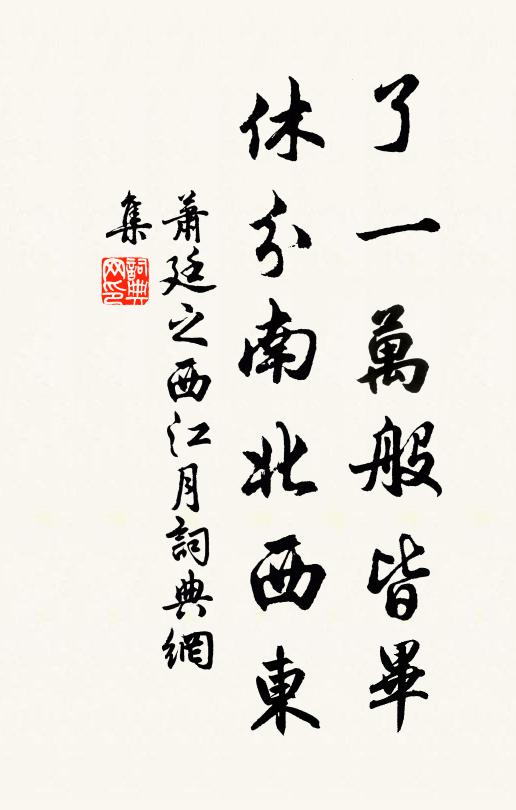 了一萬般皆畢
休分南北西東
蕭廷之西江月詞典網
集
詞典
网印